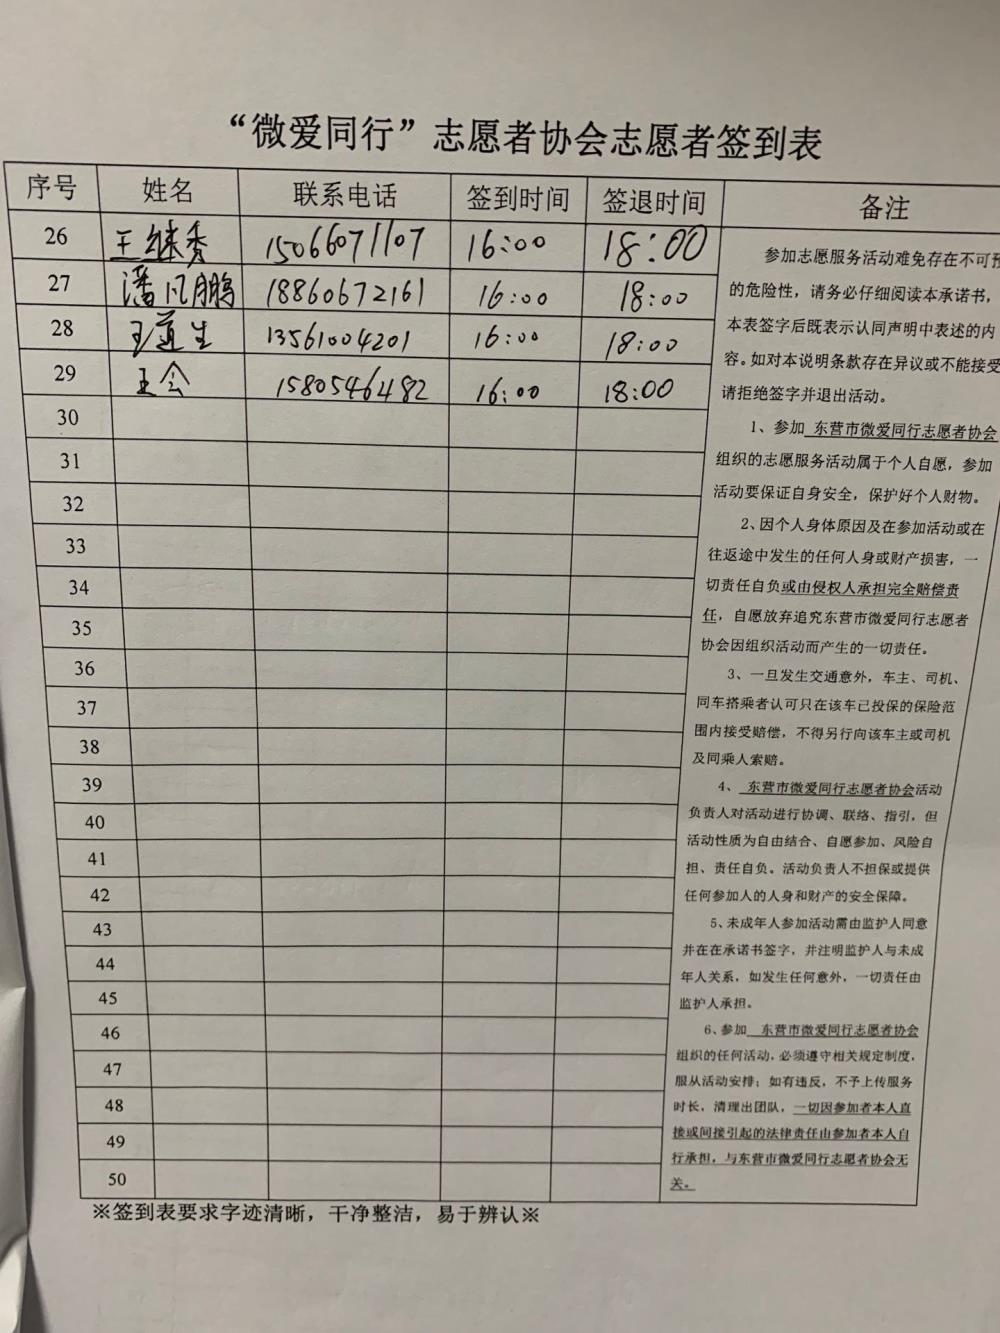 “微爱同行”志愿者协会志愿者签到表
序号 姓名 联系电话 签到时间 签退时间 备注
26 王继秀 15066071107 16:00 18:00
27 潘凡鹏 18860672161 16:00 18:00
28 王道生 13561004201 16:00 18:00
29 王会 15805464482 16:00 18:00
30
31
32
33
34
35
36
37
38
39
40
41
42
43
44
45
46
47
48
49
50
参加志愿服务活动难免存在不可预
的危险性，请务必仔细阅读本承诺书，
本表签字后既表示认同声明中表述的内
容。如对本说明条款存在异议或不能接受
请拒绝签字并退出活动。
1、参加 东营市微爱同行志愿者协会
组织的志愿服务活动属于个人自愿，参加
活动要保证自身安全，保护好个人财物。
2、因个人身体原因及在参加活动或在
往返途中发生的任何人身或财产损害，一
切责任自负或由侵权人承担完全赔偿责
任，自愿放弃追究东营市微爱同行志愿者
协会因组织活动而产生的一切责任。
3、一旦发生交通意外，车主、司机、
同车搭乘者认可只在该车已投保的保险范
围内接受赔偿，不得另行向该车主或司机
及同乘人索赔。
4、 东营市微爱同行志愿者协会活动
负责人对活动进行协调、联络、指引，但
活动性质为自由结合、自愿参加、风险自
担、责任自负。活动负责人不担保或提供
任何参加人的人身和财产的安全保障。
5、未成年人参加活动需由监护人同意
并在在承诺书签字，并注明监护人与未成
年人关系，如发生任何意外，一切责任由
监护人承担。
6、参加 东营市微爱同行志愿者协会
组织的任何活动，必须遵守相关规定制度，
服从活动安排；如有违反，不予上传服务
时长，清理出团队，一切因参加者本人直
接或间接引起的法律责任由参加者本人自
行承担，与东营市微爱同行志愿者协会无
关。
※签到表要求字迹清晰，干净整洁，易于辨认※